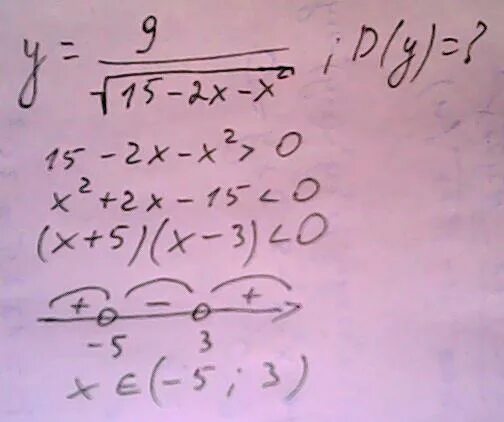 y = 9 / √(15 - 2x - x²) ; D(y) = ?
15 - 2x - x² > 0
x² + 2x - 15 < 0
(x+5)(x-3) < 0
+ - +
-5 3
x ∈ (-5 ; 3)